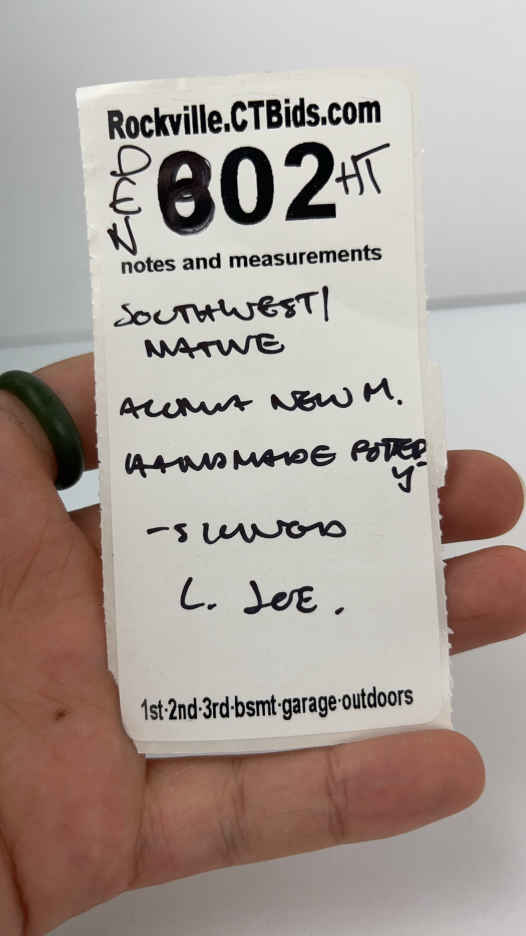 Rockville.CTBids.com
NED
802 HT
notes and measurements
SOUTHWEST/
NATIVE
ACOMA NEW M.
HANDMADE POTTERY
- SIGNED
L. JOE.
1st·2nd·3rd·bsmt·garage·outdoors